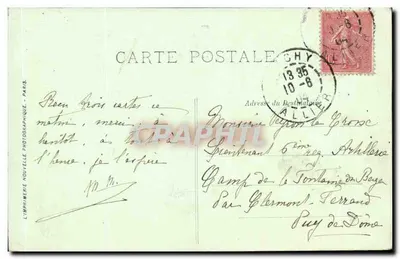 CARTE POSTALE
CHY
13 35
10 -8
ALLIER
Adresse du Destinataire
L'IMPRIMERIE NOUVELLE PHOTOGRAPHIQUE - PARIS.
Reçu trois cartes ce
matin merci à
bientôt à
l'heure je l'espère
Monsieur
Lieutenant 6ème Rég Artillerie
Camp de la Fontaine du Berger
Par Clermont-Ferrand
Puy de Dôme
CARTE POSTALE